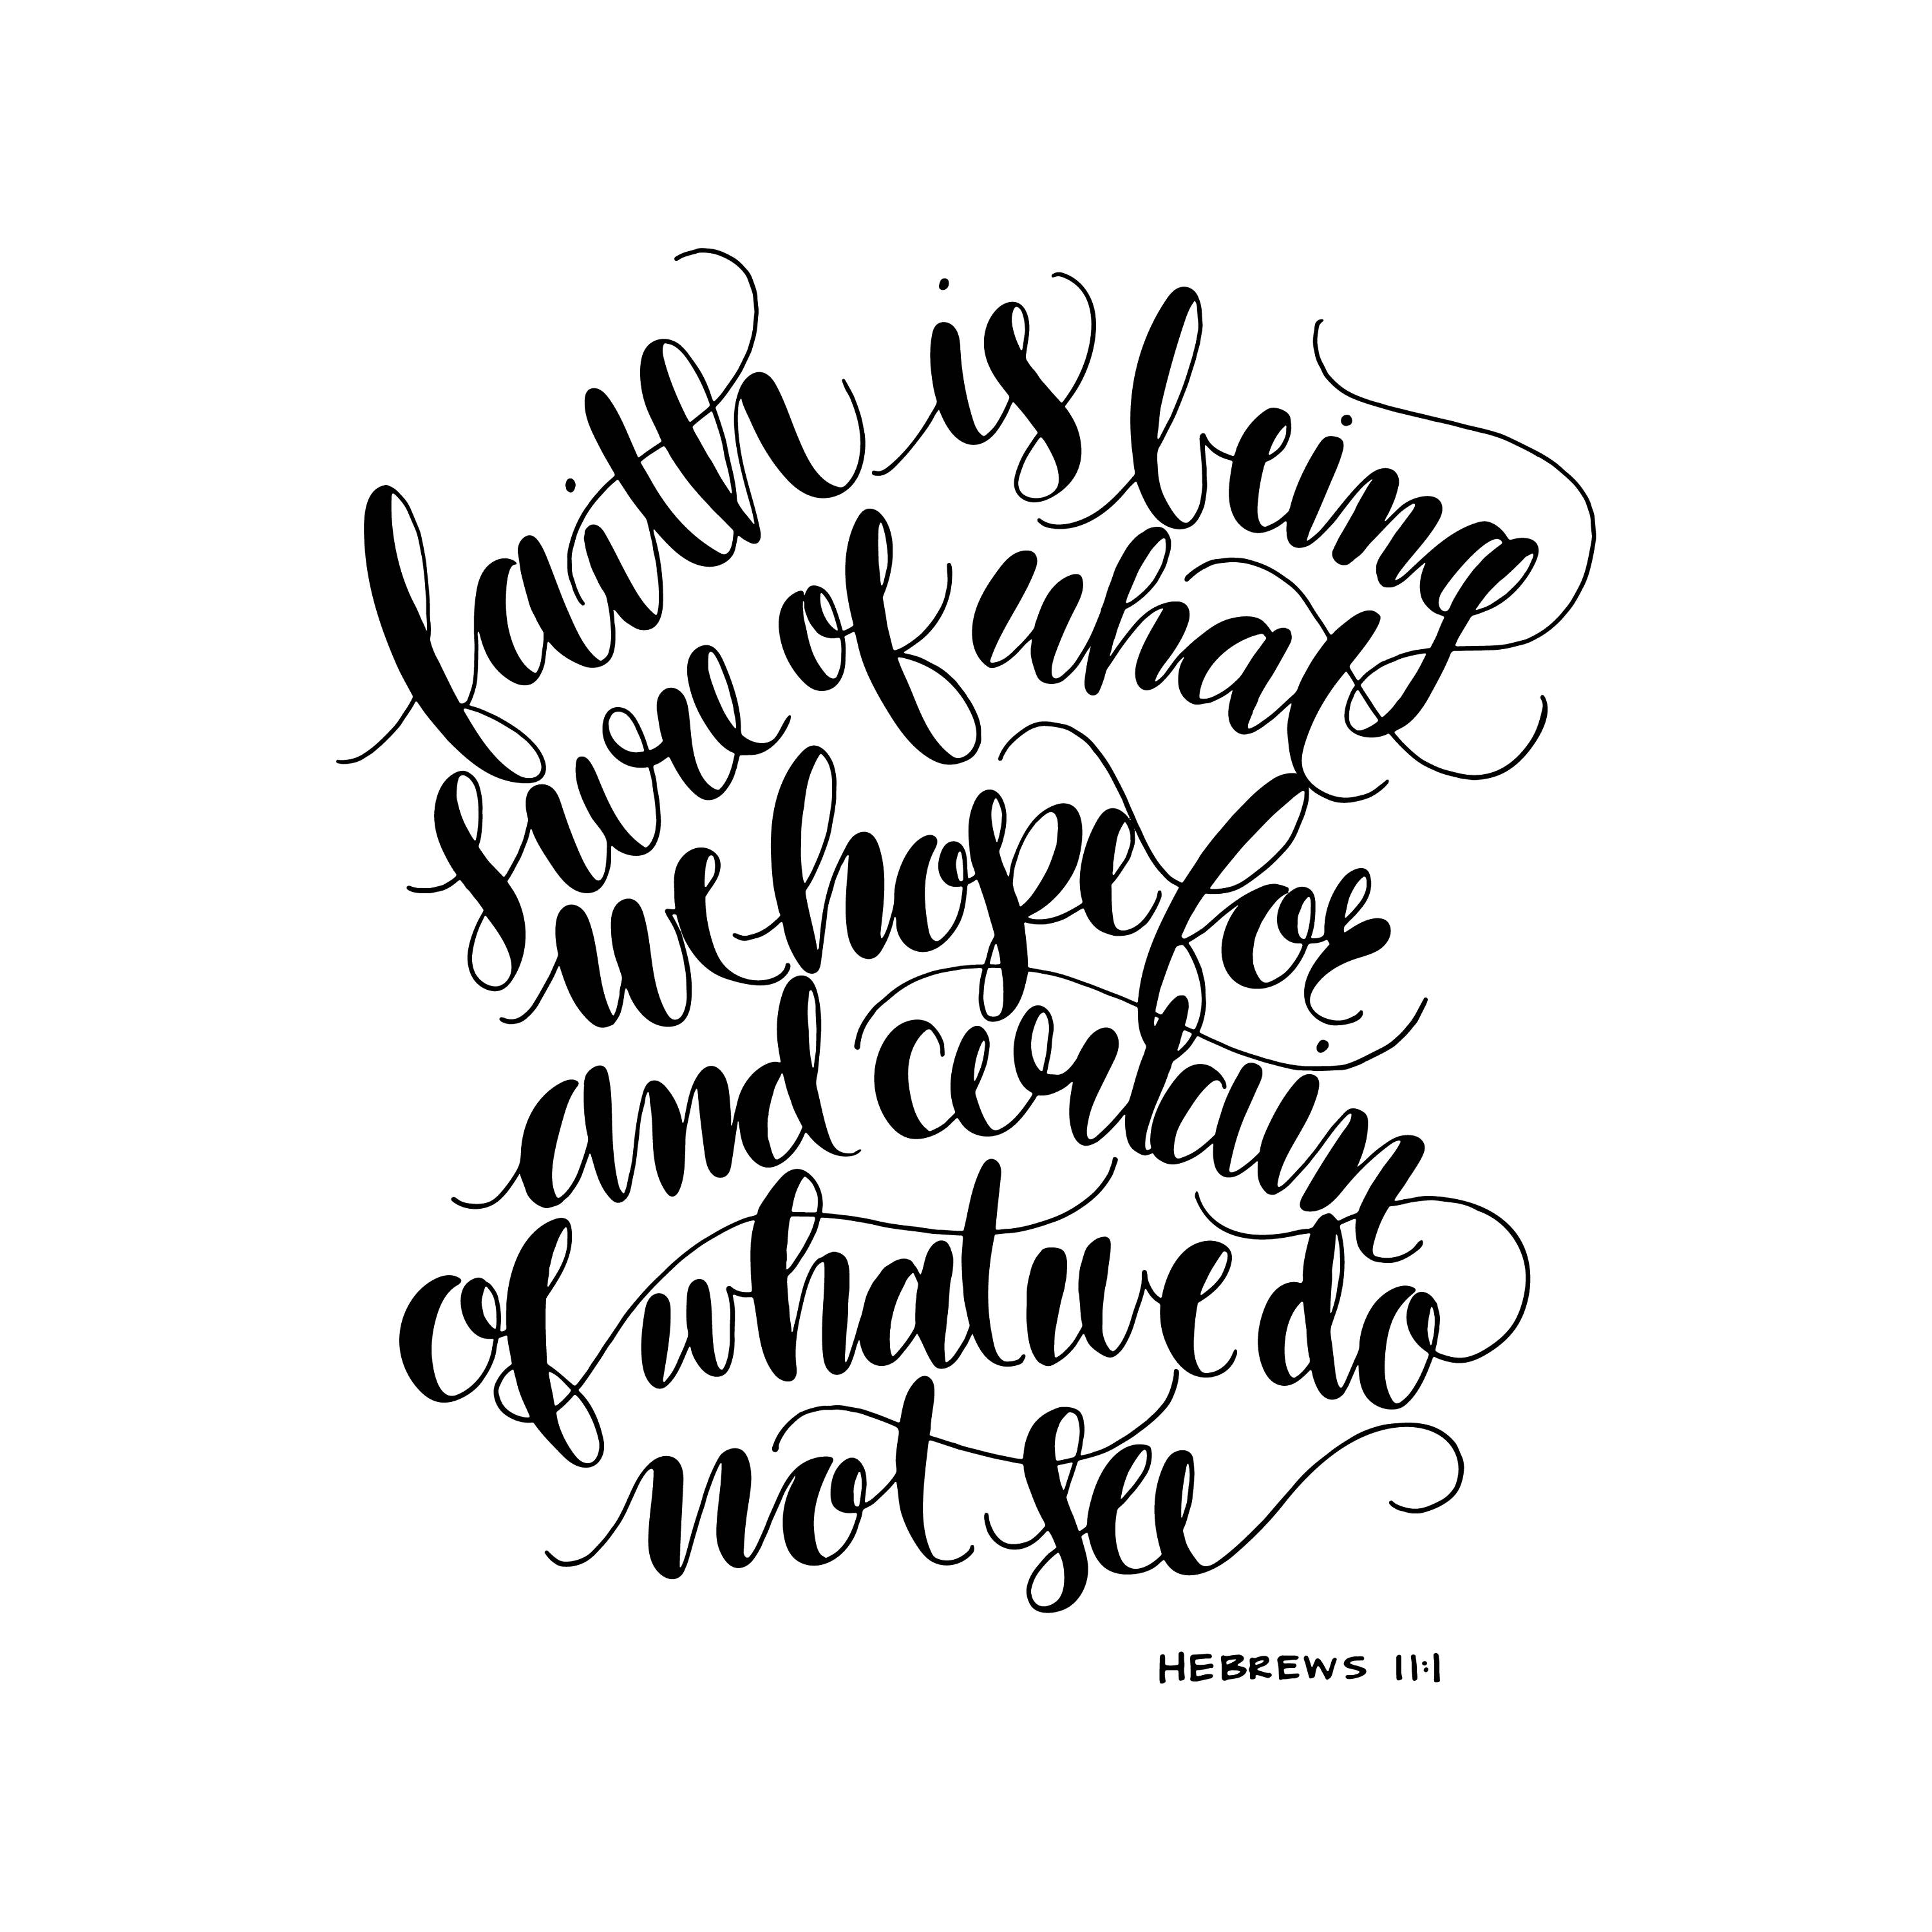 faith is being
sure of what
we hoped for
and certain
of what we do
not see
HEBREWS 11:1